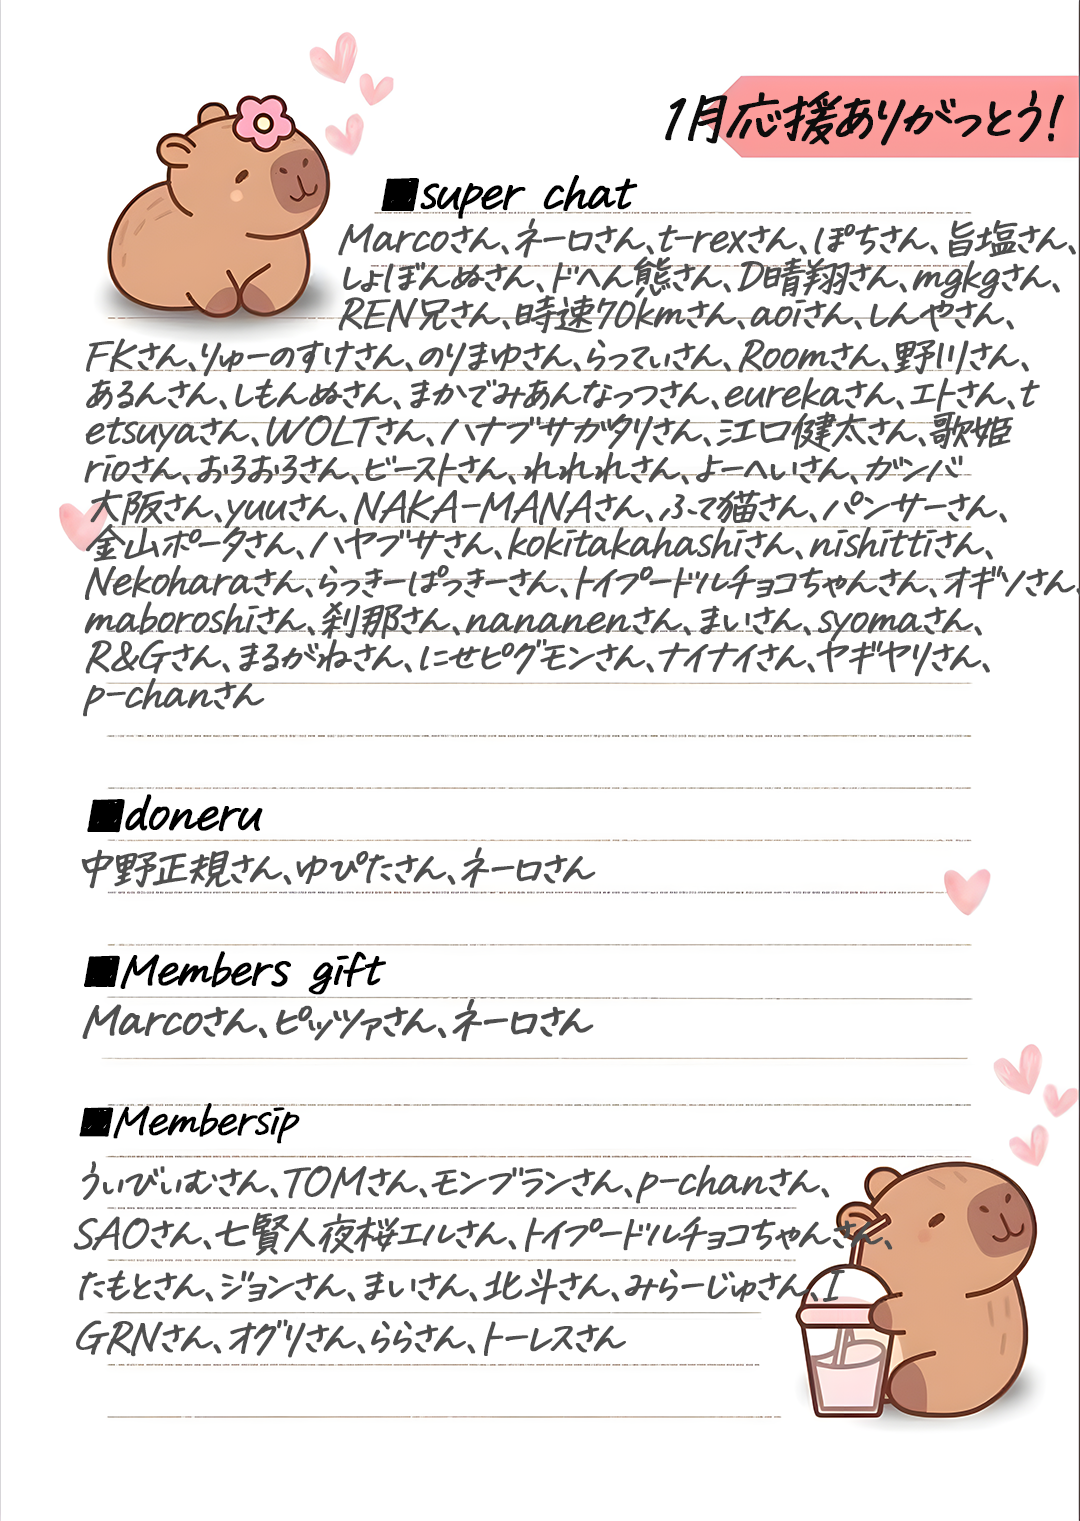 1月応援ありがっとう!
■super chat
Marcoさん、ネーロさん、t-rexさん、ぽちさん、旨塩さん、
しょぼんぬさん、ドへん熊さん、D晴翔さん、mgkgさん、
REN兄さん、時速70kmさん、aoiさん、しんやさん、
FKさん、りゅーのすけさん、のりまゆさん、らってぃさん、Roomさん、野川さん、
あるんさん、しもんぬさん、まかでみあんなっつさん、eurekaさん、エトさん、t
etsuyaさん、WOLTさん、ハナブサガタリさん、江口健太さん、歌姫
rioさん、おろおろさん、ビーストさん、れれれさん、よーへいさん、ガンバ
大阪さん、yuuさん、NAKA-MANAさん、ふて猫さん、パンサーさん、
金山ポータさん、ハヤブサさん、kokitakahashiさん、nishittiさん、
Nekoharaさん、らっきーぱっきーさん、トイプードルチョコちゃんさん、オギソさん、
maboroshiさん、刹那さん、nananenさん、まいさん、syomaさん、
R&Gさん、まるがねさん、にせピグモンさん、ナイナイさん、ヤギヤリさん、
p-chanさん
■doneru
中野正規さん、ゆぴたさん、ネーロさん
■Members gift
Marcoさん、ピッツァさん、ネーロさん
■Membersip
うぃびぃむさん、TOMさん、モンブランさん、p-chanさん、
SAOさん、七賢人夜桜エルさん、トイプードルチョコちゃんさん、
たもとさん、ジョンさん、まいさん、北斗さん、みらーじゅさん、I
GRNさん、オグリさん、ららさん、トーレスさん